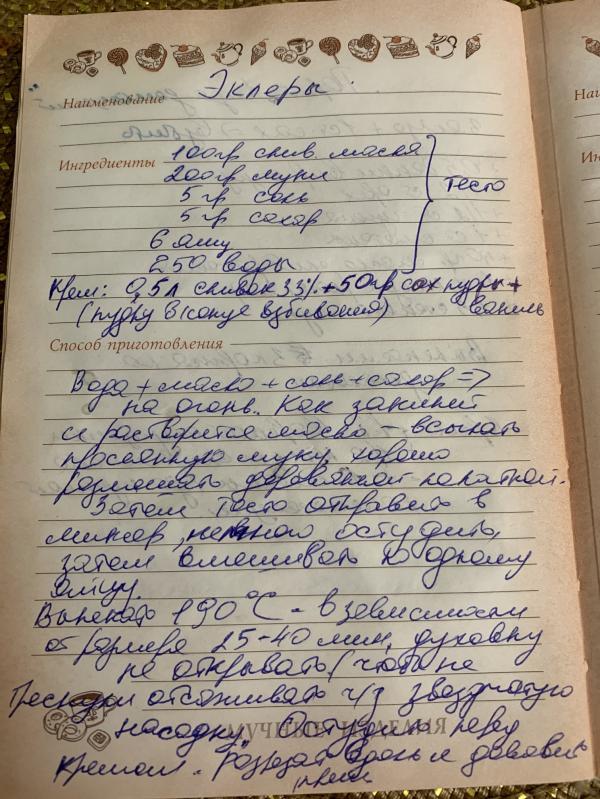 Эклеры.
Наименование
Ингредиенты 100гр слив. масла
200гр муки
5 гр соль
5 гр сахар
6 яиц
250 воды
тесто
Крем: 0,5л сливок 33% + 50гр сах пудры +
(пудру в конце взбивания) ваниль
Способ приготовления
Вода + масло + соль + сахар =>
на огонь. Как закипит
и растворится масло – всыпать
просеянную муку, хорошо
размешать деревянной лопаткой.
Затем тесто отправить в
миксер, немного остудить,
затем вмешивать по одному
яйцу.
Выпекать 190°C - в зависимости
от размера 25-40 мин, духовку
не открывать (чтоб не
отсаживать ч/з звездчатую
насадку. Остудить перед
МУЧНЫЕ ИЗДЕЛИЯ
кремом. Разрезать вдоль и добавить